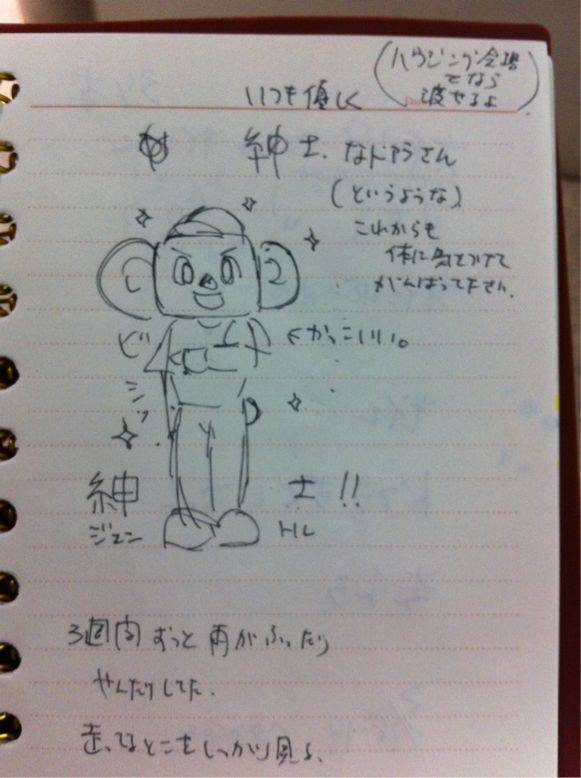 (ハウジング会場
でなら
渡せるよ)
いつも優しく
紳士、なドアラさん
(というような)
これからも
体に気をつけて
がんばって下さい。
ビ
シッ
←かっこいい。
紳 士!!
ジェン トル
3週間ずっと雨がふったり
やんだりしてた。
走ってるとこをしっかり見る。